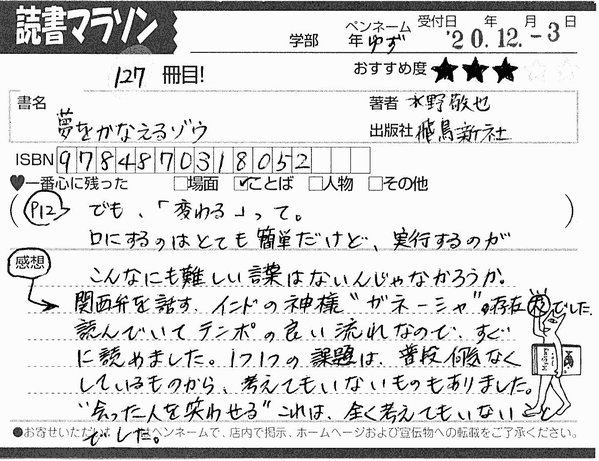 読書マラソン
学部 年 ペンネーム ゆず 受付日 年 月 日 '20.12.-3
127 冊目!
おすすめ度 ★★★☆☆
書名 夢をかなえるゾウ
著者 水野敬也
出版社 飛鳥新社
ISBN 9784870318052
♥一番心に残った □場面 ☑ことば □人物 □その他
(P12) でも、「変わる」って。
口にするのはとても簡単だけど、実行するのが
こんなにも難しい言葉はないんじゃなかろうか。
感想
関西弁を話す、インドの神様"ガネーシャ"の存在 でした。
読んでいてテンポの良い流れなので、すぐ
に読めました。1つ1つの課題は、普段何気なく
しているものから、考えてもいないものもありました。
"会った人を笑わせる"これは、全く考えてもいないこと
でした。
●お寄せいただい ペンネームで、店内で掲示、ホームページおよび宣伝物への転載をご了承ください。